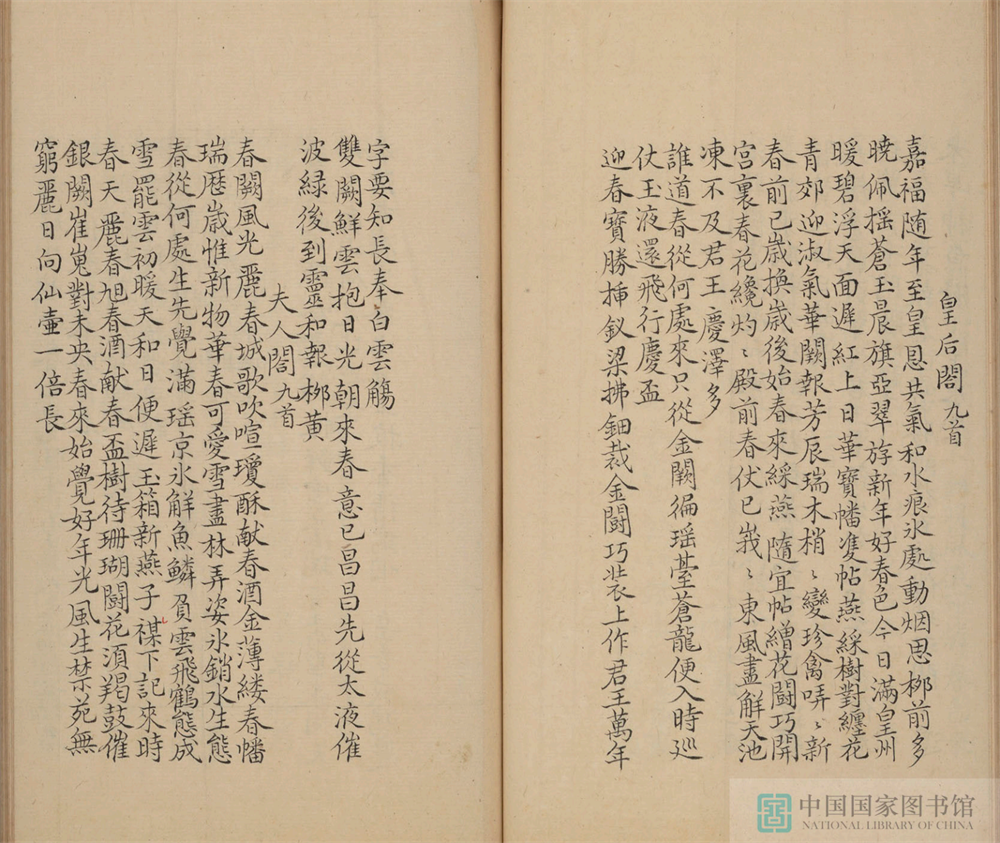 皇后閤 九首
嘉福随年至皇恩共氣和水痕氷處動烟思栁前多
曉佩揺蒼玉晨旗亞翠斿新年好春色今日滿皇州
暖碧浮天面遲紅上日華寳幡隻帖燕綵樹對纏花
青郊迎淑氣華闕報芳辰瑞木梢〻變珍禽哢〻新
春前已歳換歳後始春來綵燕隨宜帖繒花鬪巧開
宫裏春花纔灼〻殿前春仗已峩〻東風盡解天池
凍不及君王慶澤多
誰道春從何處來只從金闕徧瑶䑓蒼龍便入時廵
仗玉液還飛行慶盃
迎春寳勝揷釵梁拂鈿裁金鬪巧裝上作君王萬年
字要知長奉白雲觴
雙闕鮮雲抱日光朝來春意已昌昌先從太液催
波緑後到靈和報栁黄
夫人閤 九首
春闕風光麗春城歌吹喧瓊酥献春酒金薄縷春幡
瑞歴歳惟新物華春可愛雪盡林弄姿氷銷水生態
春從何處生先覺滿瑶京氷解魚鱗負雲飛鶴態成
雪罷雲初暖天和日便遲玉箱新燕子禖下記來時
春天麗春旭春酒献春盃樹待珊瑚鬪花湏羯鼓催
銀闕崔嵬對未央春來始覺好年光風生禁苑無
窮麗日向仙壷一倍長
中国国家图书馆
NATIONAL LIBRARY OF CHINA